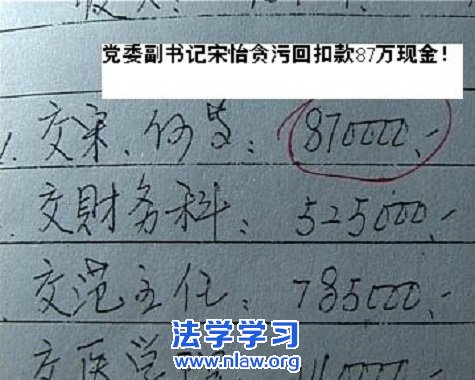 党委副书记宋怡贪污回扣款87万现金！
交宋、何
870000.-
交財务科：525000.-
交范主任：785000.-
法学学习
www.nlaw.org
交医学